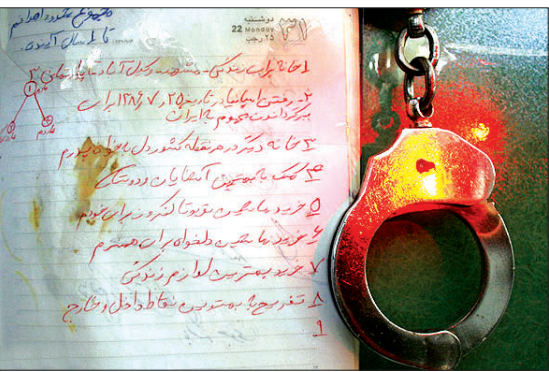 دوشنبه
۳۱
22 Monday
۲۵ رجب
تا ۱ سال آینده
۱ خانه برای زندگی - مشهد - وکیل آباد - آپارتمانی ۳
۲- رفتن اسپانیا در تاریخ ۲۵ / ۷ / ۱۳۸۶
برگرداندن مجرم به ایران
۳ خانه دیگر در هر نقطه کشور دل بخواه پدرم
۴ کمک به بهترین آشنایان و دوستان
۵ خرید ماشین تویوتا کمری برای خودم
۶ خرید ماشین دلخواه برای همسرم
۷ خرید بهترین لوازم زندگی
۸ تفریح به بهترین نقاط داخل و خارج
۹